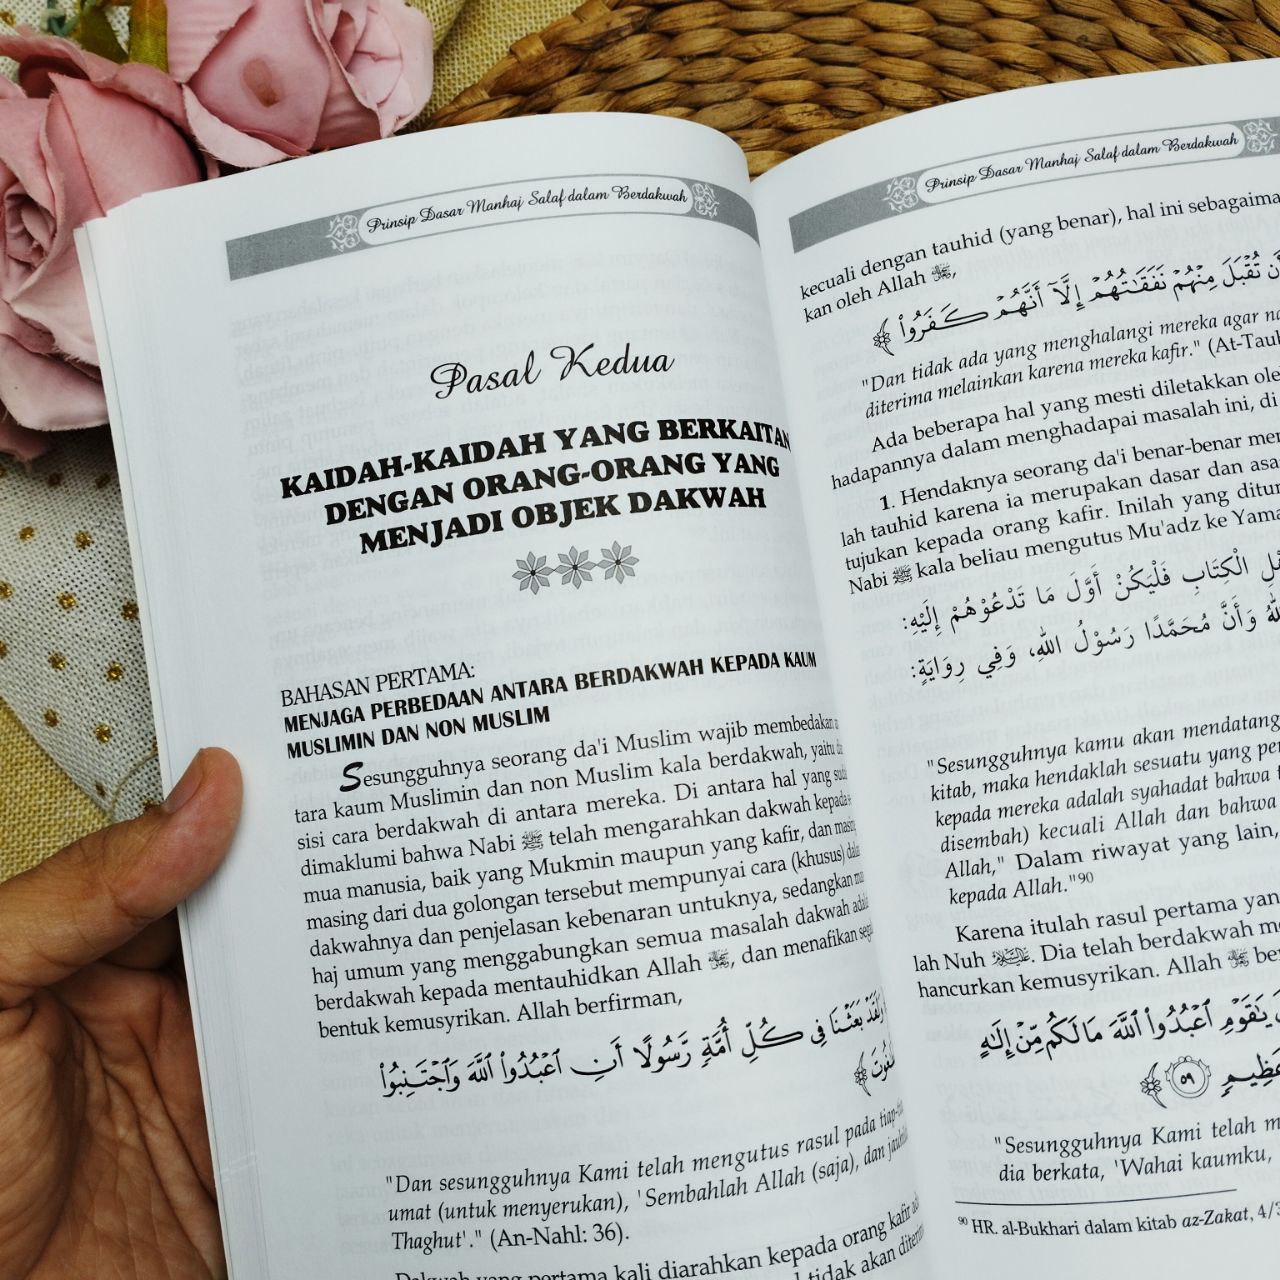 Prinsip Dasar Manhaj Salaf dalam Berdakwah
Pasal Kedua
KAIDAH-KAIDAH YANG BERKAITAN
DENGAN ORANG-ORANG YANG
MENJADI OBJEK DAKWAH
BAHASAN PERTAMA:
MENJAGA PERBEDAAN ANTARA BERDAKWAH KEPADA KAUM
MUSLIMIN DAN NON MUSLIM
Sesungguhnya seorang da'i Muslim wajib membedakan
tara kaum Muslimin dan non Muslim kala berdakwah, yaitu
sisi cara berdakwah di antara mereka. Di antara hal yang
dimaklumi bahwa Nabi ﷺ telah mengarahkan dakwah kepada
mua manusia, baik yang Mukmin maupun yang kafir, dan
masing dari dua golongan tersebut mempunyai cara (khusus)
dakwahnya dan penjelasan kebenaran untuknya, sedangkan
haj umum yang menggabungkan semua masalah dakwah
berdakwah kepada mentauhidkan Allah ﷻ, dan menafikan
bentuk kemusyrikan. Allah berfirman,
وَلَقَدْ بَعَثْنَا فِي كُلِّ أُمَّةٍ رَّسُولًا أَنِ ٱعْبُدُوا۟ ٱللَّهَ وَٱجْتَنِبُوا۟
"Dan sesungguhnya Kami telah mengutus rasul pada
umat (untuk menyerukan), 'Sembahlah Allah (saja), dan
Thaghut'." (An-Nahl: 36).
Dakwah yang pertama kali diarahkan kepada orang kafir
tidak akan
Prinsip Dasar Manhaj Salaf dalam Berdakwah
kecuali dengan tauhid (yang benar), hal ini
kan oleh Allah ﷻ,
أَن تُقْبَلَ مِنْهُمْ نَفَقَٰتُهُمْ إِلَّآ أَنَّهُمْ كَفَرُوا۟
"Dan tidak ada yang menghalangi mereka agar
diterima melainkan karena mereka kafir."
Ada beberapa hal yang mesti diletakkan
hadapannya dalam menghadapai masalah ini, di
1. Hendaknya seorang da'i benar-benar
lah tauhid karena ia merupakan dasar dan
tujukan kepada orang kafir. Inilah yang
Nabi ﷺ kala beliau mengutus Mu'adz ke
الْكِتَابِ فَلْيَكُنْ أَوَّلَ مَا تَدْعُوْهُمْ إِلَيْهِ:
وَأَنَّ مُحَمَّدًا رَسُوْلُ اللهِ، وَفِي رِوَايَةٍ:
"Sesungguhnya kamu akan
kitab, maka hendaklah sesuatu yang
kepada mereka adalah syahadat bahwa
disembah) kecuali Allah dan bahwa
Allah," Dalam riwayat yang lain,
kepada Allah."90
Karena itulah rasul pertama
lah Nuh. Dia telah berdakwah
hancurkan kemusyrikan. Allah ﷻ
يَٰقَوْمِ ٱعْبُدُوا۟ ٱللَّهَ مَا لَكُم مِّنْ إِلَٰهٍ
عَظِيمٍ ٥٩
"Sesungguhnya Kami telah
dia berkata, 'Wahai kaumku,
90 HR. al-Bukhari dalam kitab az-Zakat,